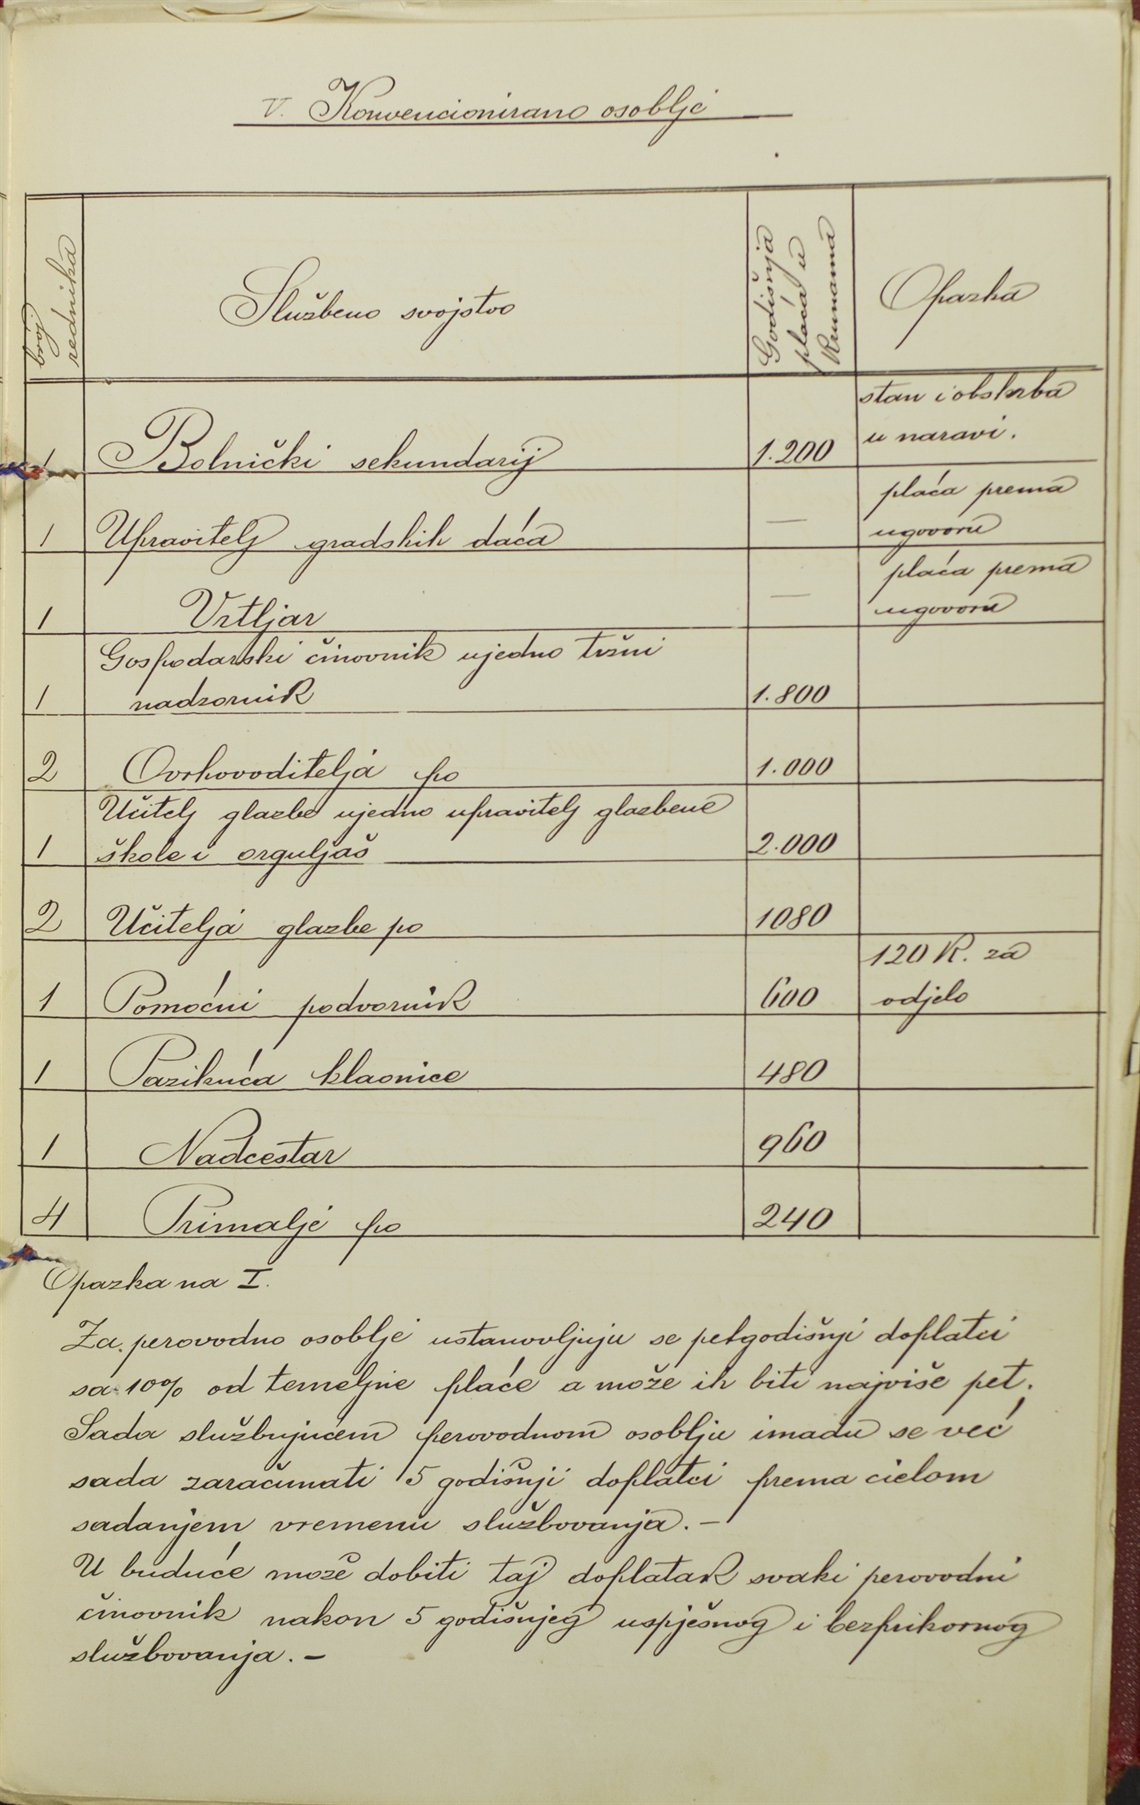 V. Konvencionirano osoblje
broj rednika
Službeno svojstvo
Godišnja plaća u Krunama
Opazka
1 Bolnički sekundarij 1.200 stan i obskrba
u naravi.
1 Upravitelj gradskih daća — plaća prema
ugovoru
1 Vrtljar — plaća prema
ugovoru
Gospodarski činovnik ujedno tržni
1 nadzornik 1.800
2 Ovrhovoditelja po 1.000
Učitelj glazbe ujedno upravitelj glazbene
1 škole i orguljaš 2.000
2 Učitelja glazbe po 1080
1 Pomoćni podvornik 600 120 K. za
odjelo
1 Pazikuća klaonice 480
1 Nadcestar 960
4 Primalje po 240
Opazka na I.
Za perovodno osoblje ustanovljuju se petgodišnji doplatci
sa 10% od temeljne plaće a može ih biti najviše pet.
Sada službujućem perovodnom osoblju imadu se već
sada zaračunati 5 godišnji doplatci prema cielom
sadanjem vremenu službovanja. —
U buduće može dobiti taj doplatak svaki perovodni
činovnik nakon 5 godišnjeg uspješnog i bezprikornog
službovanja. —